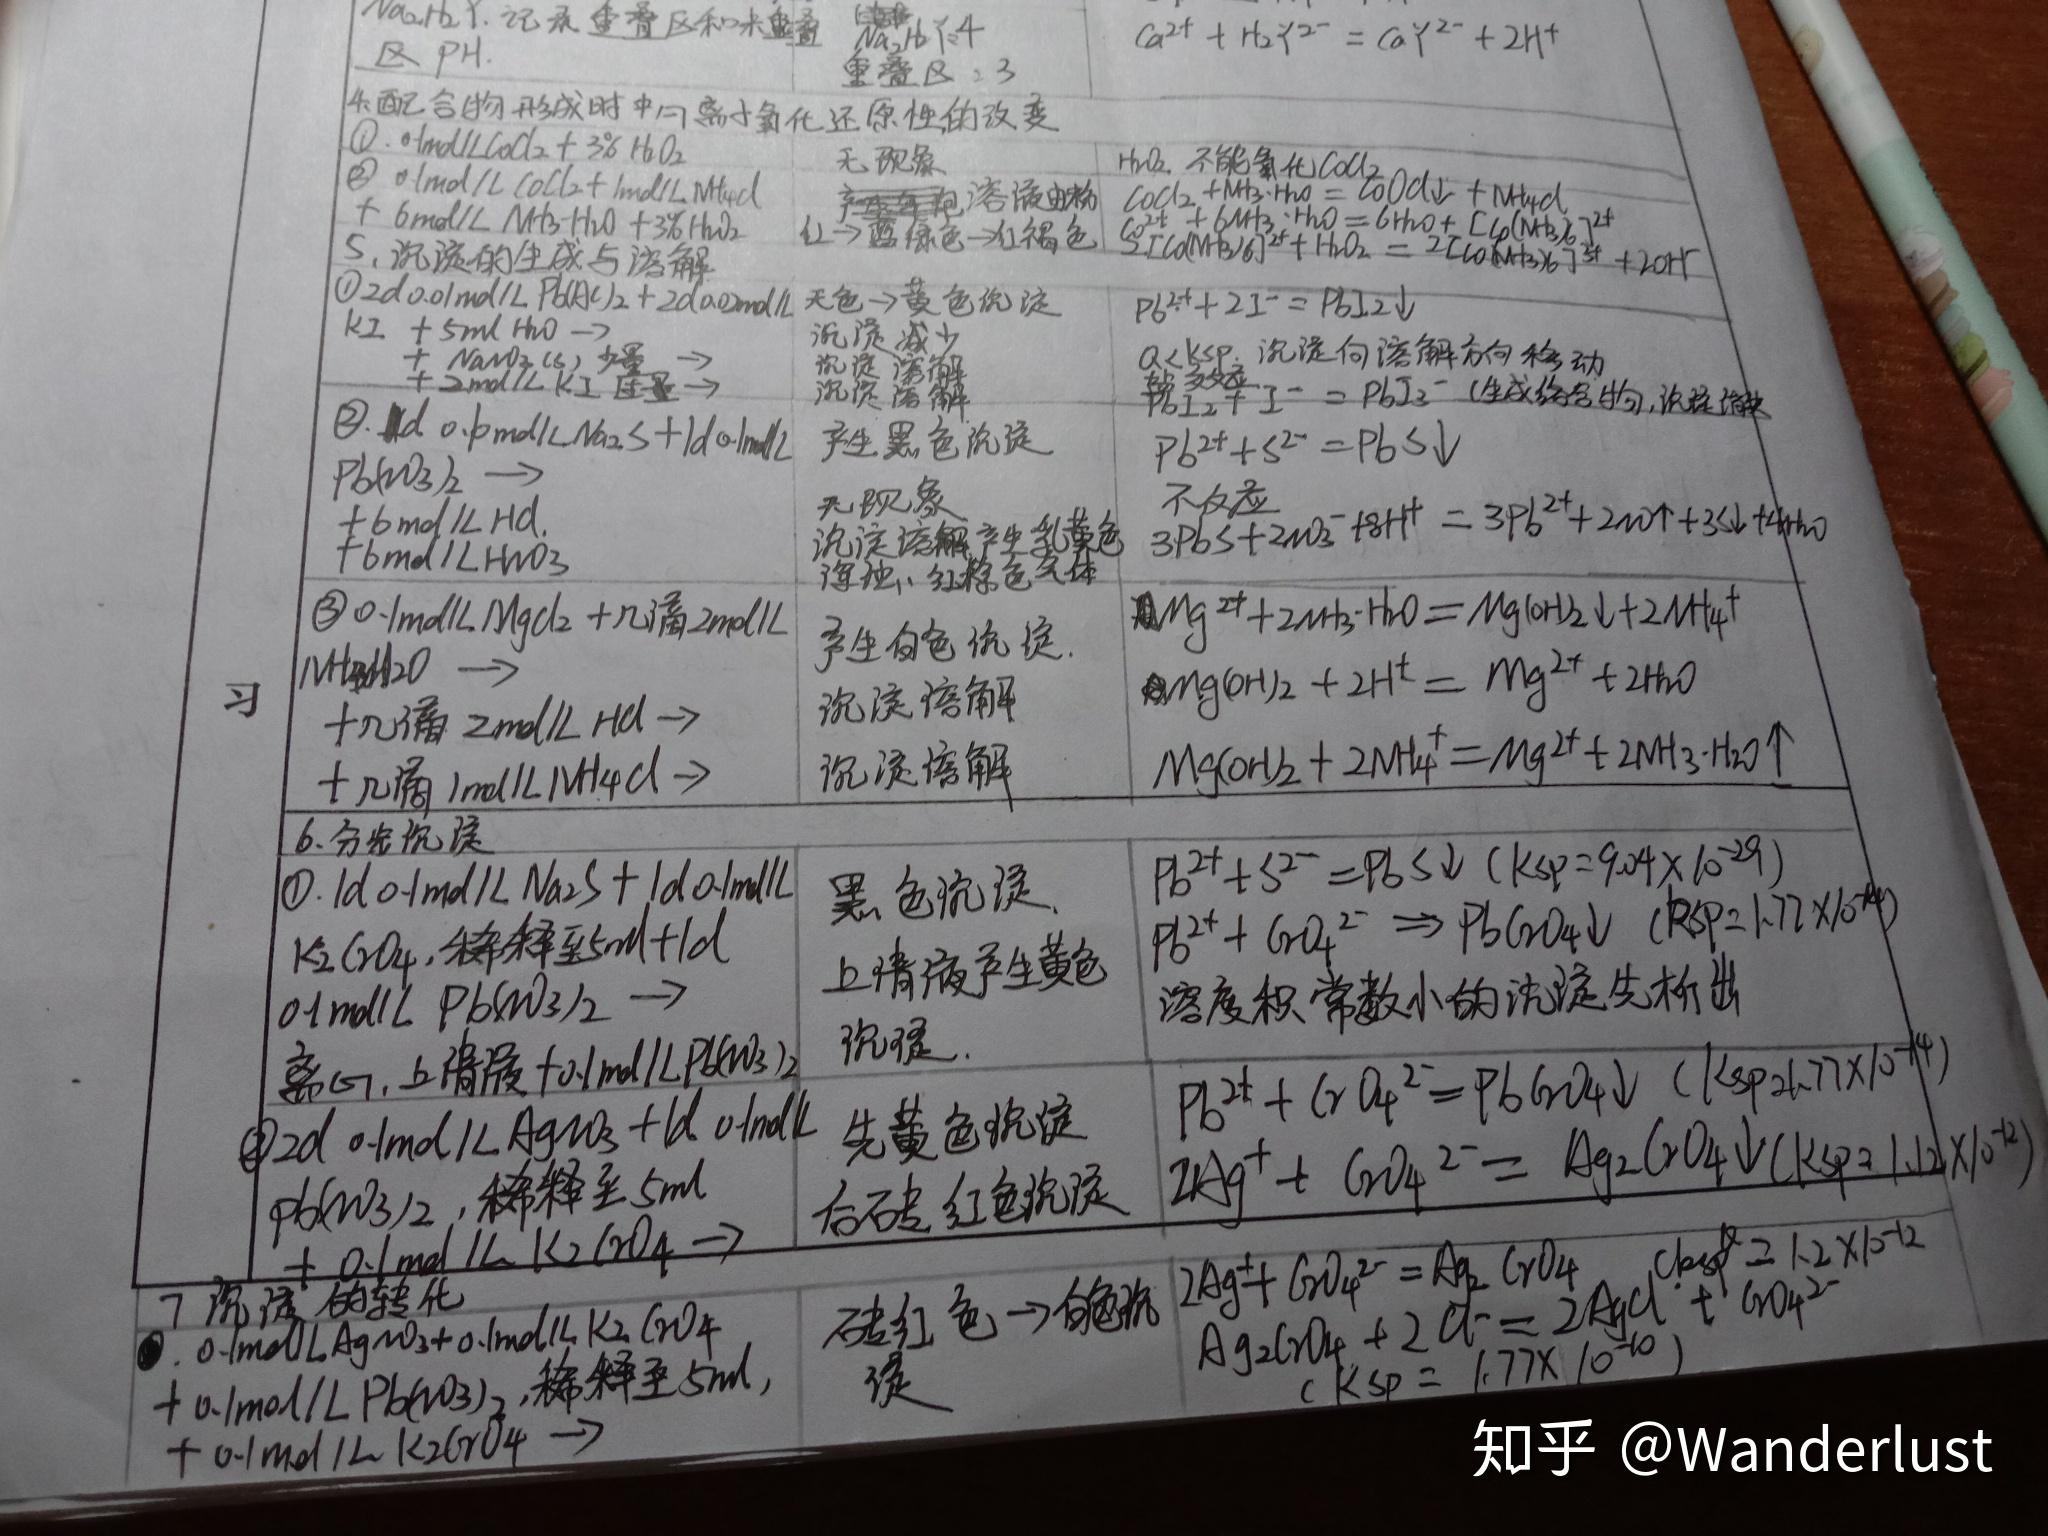 Na2H2Y. 记录重叠区和未重叠
区 PH.
Na2H2Y: 4
重叠区: 3
Ca²⁺ + H2Y²⁻ = CaY²⁻ + 2H⁺
4.配合物形成时中心离子氧化还原性的改变
①. 0.1mol/L CoCl2 + 3% H2O2
无现象
H2O2 不能氧化CoCl2
② 0.1mol/L CoCl2 + 1mol/L NH4Cl
+ 6mol/L NH3·H2O + 3% H2O2
溶液由粉
红→蓝绿色→红褐色
CoCl2 + NH3·H2O = CoOCl↓ + NH4Cl
Co²⁺ + 6NH3·H2O = 6H2O + [Co(NH3)6]²⁺
2[Co(NH3)6]²⁺ + H2O2 = 2[Co(NH3)6]³⁺ + 2OH⁻
5、沉淀的生成与溶解
①2d 0.01mol/L Pb(Ac)2 + 2d 0.02mol/L
KI + 5ml H2O →
+ NaNO3(s) 少量 →
+ 2mol/L KI 过量 →
无色→黄色沉淀
沉淀减少
沉淀溶解
沉淀溶解
Pb²⁺ + 2I⁻ = PbI2↓
Q<Ksp. 沉淀向溶解方向移动
盐效应
PbI2 + I⁻ = PbI3⁻ (生成络合物, 沉淀溶解
②. 1d 0.1mol/L Na2S + 1d 0.1mol/L
Pb(NO3)2 →
+ 6mol/L HCl.
+ 6mol/L HNO3
产生黑色沉淀
无现象
沉淀溶解产生乳黄色
浑浊、红棕色气体
Pb²⁺ + S²⁻ = PbS↓
不反应
3PbS + 2NO3⁻ + 8H⁺ = 3Pb²⁺ + 2NO↑ + 3S↓ + 4H2O
③ 0.1mol/L MgCl2 + 几滴 2mol/L
NH3·H2O →
+ 几滴 2mol/L HCl →
+ 几滴 1mol/L NH4Cl →
产生白色沉淀.
沉淀溶解
沉淀溶解
Mg²⁺ + 2NH3·H2O = Mg(OH)2↓ + 2NH4⁺
Mg(OH)2 + 2H⁺ = Mg²⁺ + 2H2O
Mg(OH)2 + 2NH4⁺ = Mg²⁺ + 2NH3·H2O↑
习
6.分步沉淀
①. 1d 0.1mol/L Na2S + 1d 0.1mol/L
K2CrO4, 稀释至5ml + 1d
0.1mol/L Pb(NO3)2 →
离心, 上清液 + 0.1mol/L Pb(NO3)2
黑色沉淀、
上清液产生黄色
沉淀.
Pb²⁺ + S²⁻ = PbS↓ (Ksp = 9.04×10⁻²⁹)
Pb²⁺ + CrO4²⁻ ⇒ PbCrO4↓ (Ksp = 1.77×10⁻¹⁴)
溶度积常数小的沉淀先析出
② 2d 0.1mol/L AgNO3 + 1d 0.1mol/L
Pb(NO3)2, 稀释至5ml
+ 0.1mol/L K2CrO4 →
先黄色沉淀
后砖红色沉淀
Pb²⁺ + CrO4²⁻ = PbCrO4↓ (Ksp=1.77×10⁻¹⁴)
2Ag⁺ + CrO4²⁻ = Ag2CrO4↓ (Ksp = 1.12×10⁻¹²)
7 沉淀的转化
0.1mol/L AgNO3 + 0.1mol/L K2CrO4
+ 0.1mol/L Pb(NO3)2, 稀释至5ml,
+ 0.1mol/L K2CrO4 →
砖红色→白色沉
淀
2Ag⁺ + CrO4²⁻ = Ag2CrO4 (Ksp = 1.2×10⁻¹²
Ag2CrO4 + 2Cl⁻ = 2AgCl + CrO4²⁻
(Ksp = 1.77×10⁻¹⁰)
知乎 @Wanderlust